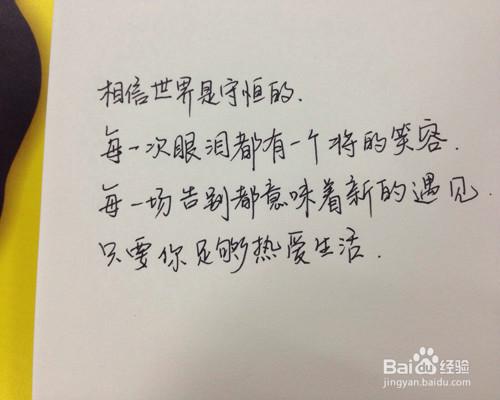 相信世界是守恒的.
每一次眼泪都有一个将的笑容.
每一场告别都意味着新的遇见.
只要你足够热爱生活.
Baidu经验
jingyan.baidu.com